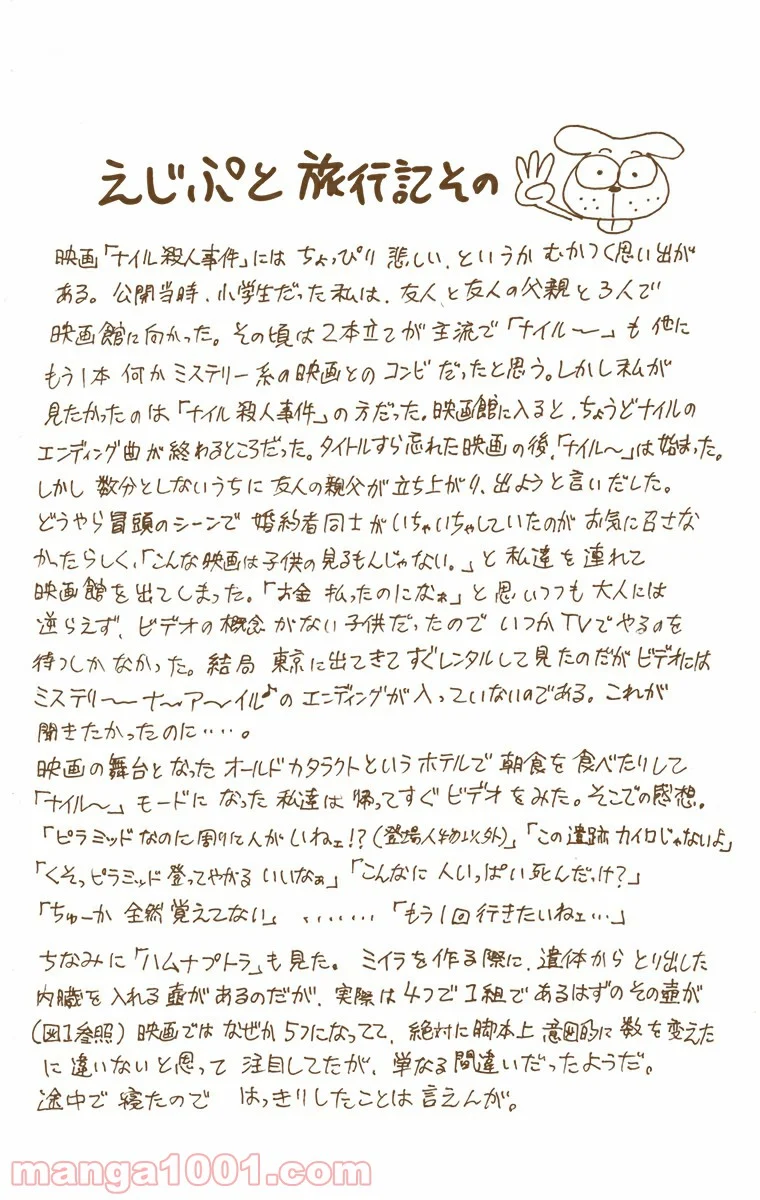 えじぷと旅行記その
映画「ナイル殺人事件」にはちょっぴり悲しい、というかむかつく思い出が
ある。公開当時、小学生だった私は、友人と友人の父親と3人で
映画館に向かった。その頃は2本立てが主流で「ナイル〜」も他に
もう1本何かミステリー系の映画とのコンビだったと思う。しかし私が
見たかったのは「ナイル殺人事件」の方だった。映画館に入ると、ちょうどナイルの
エンディング曲が終わるところだった。タイトルすら忘れた映画の後、「ナイル〜」は始まった。
しかし数分としないうちに友人の親父が立ち上がり、出ようと言いだした。
どうやら冒頭のシーンで婚約者同士がいちゃいちゃしていたのがお気に召さな
かったらしく、「こんな映画は子供の見るもんじゃない。」と私達を連れて
映画館を出てしまった。「お金払ったのになぁ」と思いつつも大人には
逆らえず、ビデオの概念がない子供だったのでいつかTVでやるのを
待つしかなかった。結局東京に出てきてすぐレンタルして見たのだがビデオには
ミステリ〜〜ナ〜ア〜イル♪のエンディングが入っていないのである。これが
聞きたかったのに‥‥。
映画の舞台となったオールドカタラクトというホテルで朝食を食べたりして
「ナイル〜」モードになった私達は帰ってすぐビデオをみた。そこでの感想。
「ピラミッドなのに周りに人がいねェ!?(登場人物以外)」「この遺跡カイロじゃないよ」
「くそっピラミッド登ってやがるいいなぁ」「こんなに人いっぱい死んだっけ?」
「ちゅーか全然覚えてない」‥‥‥‥「もう1回行きたいねェ…」
ちなみに「ハムナプトラ」も見た。ミイラを作る際に、遺体からとり出した
内臓を入れる壺があるのだが、実際は4つで1組であるはずのその壺が
(図1参照)映画ではなぜか5つになってて、絶対に脚本上意図的に数を変えた
に違いないと思って注目してたが、単なる間違いだったようだ。
途中で寝たのではっきりしたことは言えんが。
manga1001.com